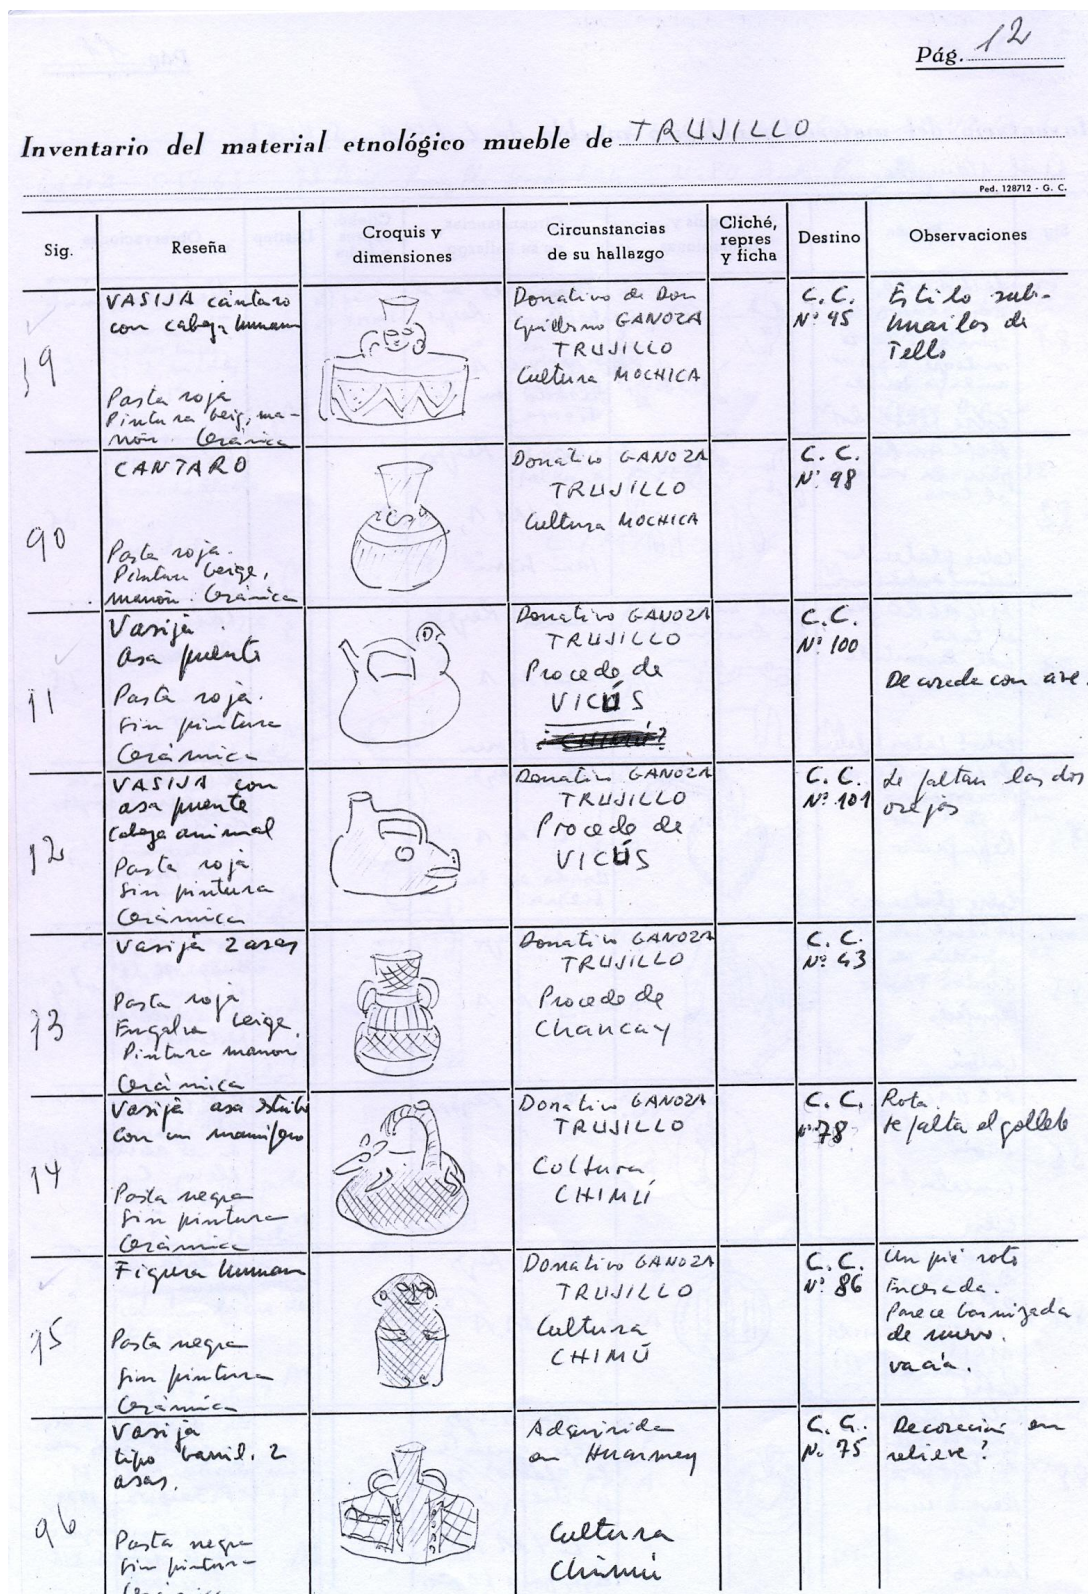 Pág. 12
Inventario del material etnológico mueble de TRUJILLO
Ped. 128712 - G. C.
Sig.
Reseña
Croquis y
dimensiones
Circunstancias
de su hallazgo
Cliché,
repres
y ficha
Destino
Observaciones
VASIJA cántaro
con cabeza humana
Pasta roja
Pintura beig, ma-
rrón. Cerámica
Donativo de Don
Guillermo GANOZA
TRUJILLO
Cultura MOCHICA
C. C.
Nº 45
Estilo sub-
de
Tello
90
CANTARO
Pasta roja.
Pintura beige,
marrón. Cerámica
Donativo GANOZA
TRUJILLO
Cultura MOCHICA
C. C.
Nº 98
11
Vasija
asa puente
Pasta roja.
Sin pintura
Cerámica
Donativo GANOZA
TRUJILLO
Procede de
VICÚS
C.C.
Nº 100
Decorada con ave.
12
VASIJA con
asa puente
Cabeza animal
Pasta roja
Sin pintura
Cerámica
Donativo GANOZA
TRUJILLO
Procede de
VICÚS
C. C.
Nº 101
Le faltan las dos
orejas
13
Vasija 2 asas
Pasta roja
Engalba beige.
Pintura marrón
Cerámica
Donativo GANOZA
TRUJILLO
Procede de
Chancay
C. C.
Nº 43
14
Vasija asa estribo
con un mamífero
Pasta negra
Sin pintura
Cerámica
Donativo GANOZA
TRUJILLO
Coltura
CHIMÚ
C. C.
Nº 78
Rota.
le falta el gollete
95
Figura humana
Pasta negra
Sin pintura
Cerámica
Donativo GANOZA
TRUJILLO
Cultura
CHIMÚ
C. C.
Nº 86
Un pié roto
Encerada.
Parece barnizada
de nuevo.
vacía.
96
Vasija
tipo barril. 2
asas.
Pasta negra
Sin pintura
Cerámica
Adquirida
en Huarmey
Cultura
Chimú
C. C.
Nº 75
Decoración en
relieve?